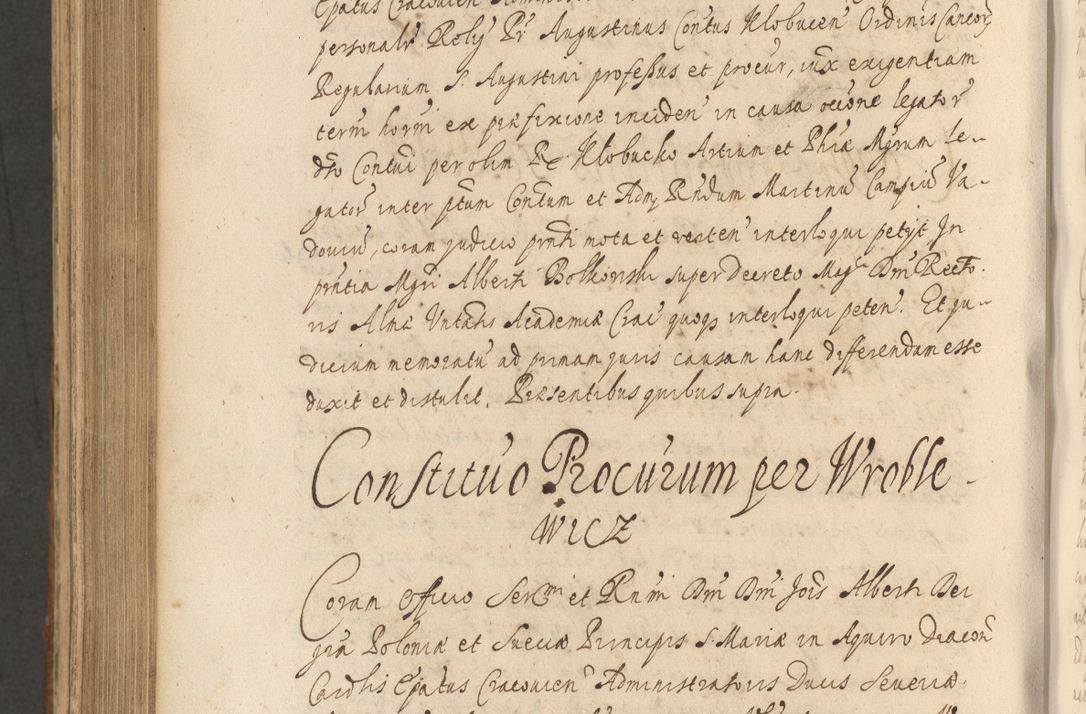 Epatus Cracovien Administ
personalr Relig Pr Augustinus Contus Klobucen Ordinis Cancor
Regularium S. Augustini professus et procur, iux exigentiam
term horm ex praefixione inciden in causa occne legator
dto Contui per olim Klobucko Artium et Phiae Mgrum le-
gator inter ptum Contum et Adm Rndum Martinu Campiu Va-
doviu, coram judicio pnti mota et verten interloqui petyt In
pntia Mgri Alberti Bolkonski super decreto Mag Dni Recto-
ris Almae Untatis Academiae Crac quoqs interloqui peten. Et ju-
dicium memoratu ad primam juris causam hanc differendam esse
duxit et distulit. Praesentibus quibus supra.
Constituo Procurum per Wroble-
wicz
Coram Officio Sermi et Rnmi Dni Dni Jois Alberti Dei
gra Poloniae et Sueciae Principis S. Mariae in Aquiro Diacon
Cardlis Epatus Cracovien Administratoris Ducis Severiae